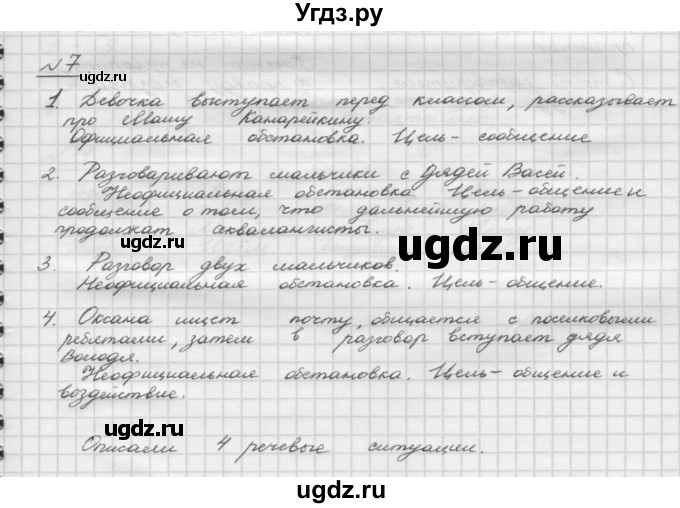 Угдз.ру
№7
ugdz.ru
1. Девочка выступает перед классом, рассказывает
про Машу Канарейкину.
Официальная обстановка. Цель - сообщение
2. Разговаривают мальчики с дядей Васей.
Неофициальная обстановка. Цель - общение и
сообщение о том, что дальнейшую работу
продолжат аквалангисты.
ugdz.ru
ugdz.ru
3. Разговор двух мальчиков.
Неофициальная обстановка. Цель - общение.
4. Оксана ищет почту, общается с поселковыми
ребятами, затем в разговор вступает дядя
Володя.
Неофициальная обстановка. Цель - общение и
воздействие.
ugdz.ru
ugdz.ru
Описали 4 речевые ситуации.
ugdz.ru